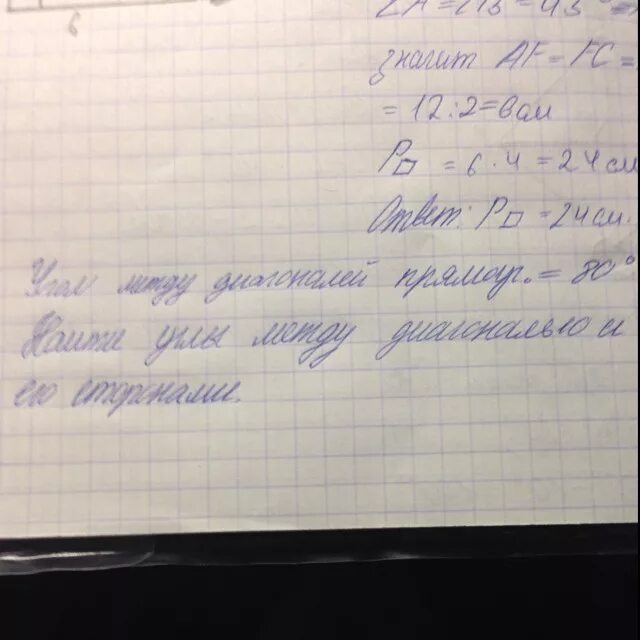 6
∠A = ∠B = 45°
значит AF = FC =
= 12 : 2 = 6 см
P□ = 6 · 4 = 24 см
Ответ: P□ = 24 см.
Угол между диагоналей прямоуг. = 80°
Найти углы между диагональю и
его сторонами.